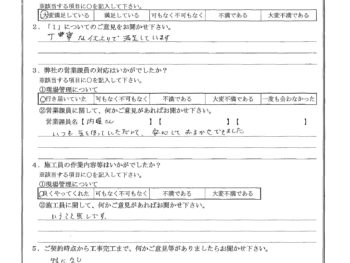 ※該当する項目に○を記入して下さい。
大変満足している 満足している 可もなく不可もなく 不満である 大変不満である
2．「１」についてのご意見をお聞かせ下さい。
丁寧な仕上りで満足しています
3．弊社の営業課員の対応はいかがでしたか？
※該当する項目に○を記入して下さい。
①現場管理について
行き届いていた 可もなく不可もなく 不満である 大変不満である 一度も会わなかった
②営業課員に関して、何かご意見があればお聞かせ下さい。
営業課員名【内堀さん】【 】【 】
いつも気を使っていただいて、安心しておまかせできました
4．施工員の作業内容等はいかがでしたか？
※該当する項目に○を記入して下さい。
①現場管理について
良くやってくれた 可もなく不可もなく 不満である 大変不満である
②施工員に関して、何かご意見があればお聞かせ下さい。
いうこと無しです。
5．ご契約時点から工事完了まで、何かご意見等がありましたらお聞かせ下さい。
特になし